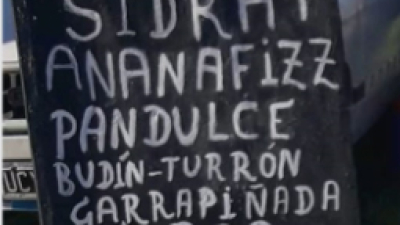 SIDRA Y
ANANAFIZZ
PANDULCE
BUDÍN-TURRÓN
GARRAPIÑADA
UCV